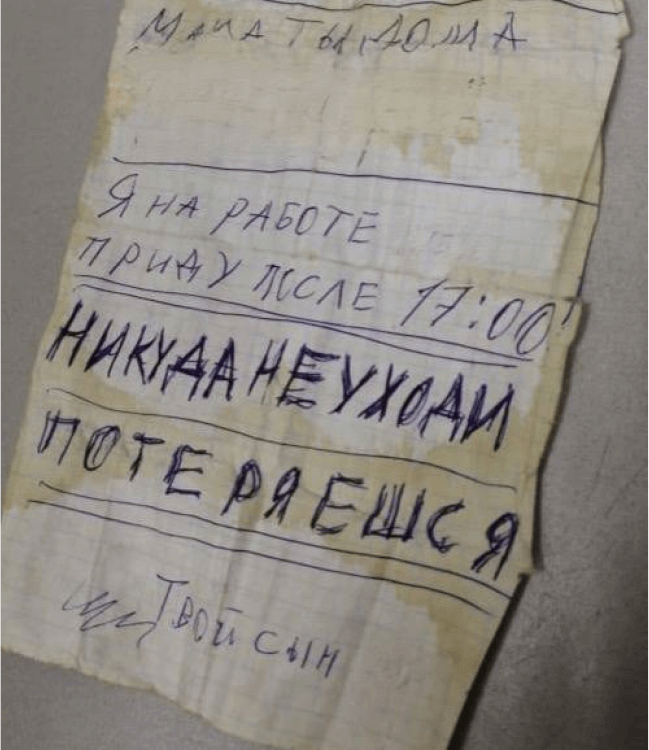 МАМА ТЫ ДОМА
Я НА РАБОТЕ
ПРИДУ ПОСЛЕ 17:00!
НИКУДА НЕ УХОДИ
ПОТЕРЯЕШСЯ
ТВОЙ СЫН